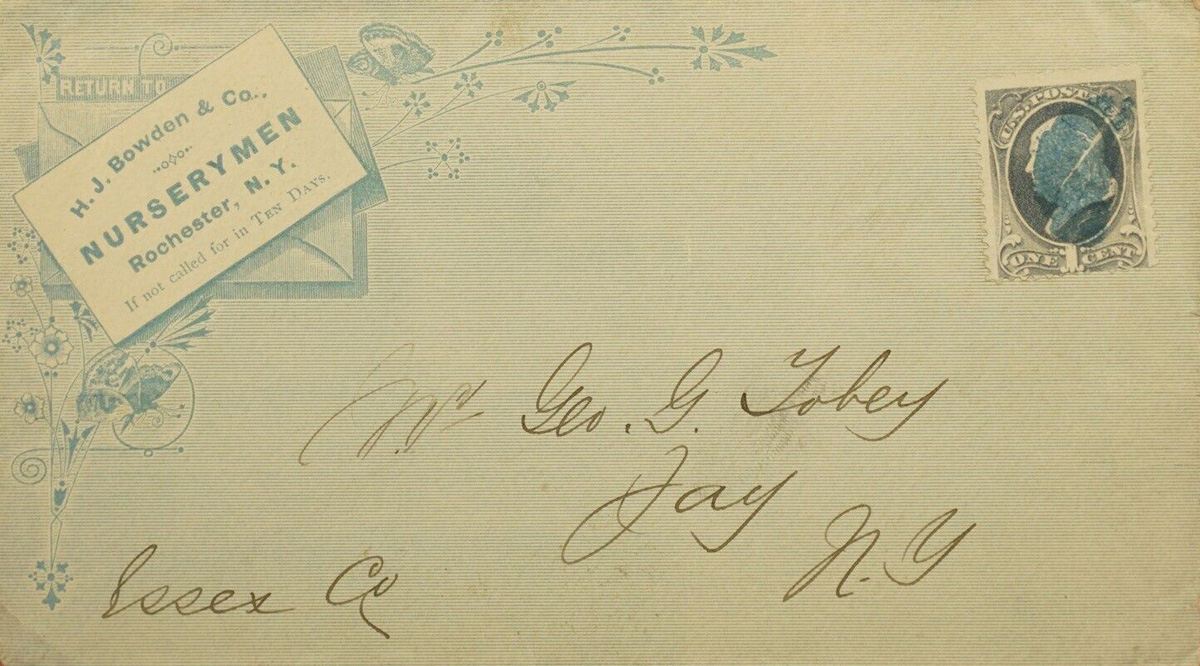 RETURN TO
H. J. Bowden & Co.,
NURSERYMEN
Rochester, N. Y.
If not called for in TEN DAYS.
U.S. POSTAGE
ONE 1 CENT
Mr Geo. G. Tobey
Jay
N.Y
Essex Co